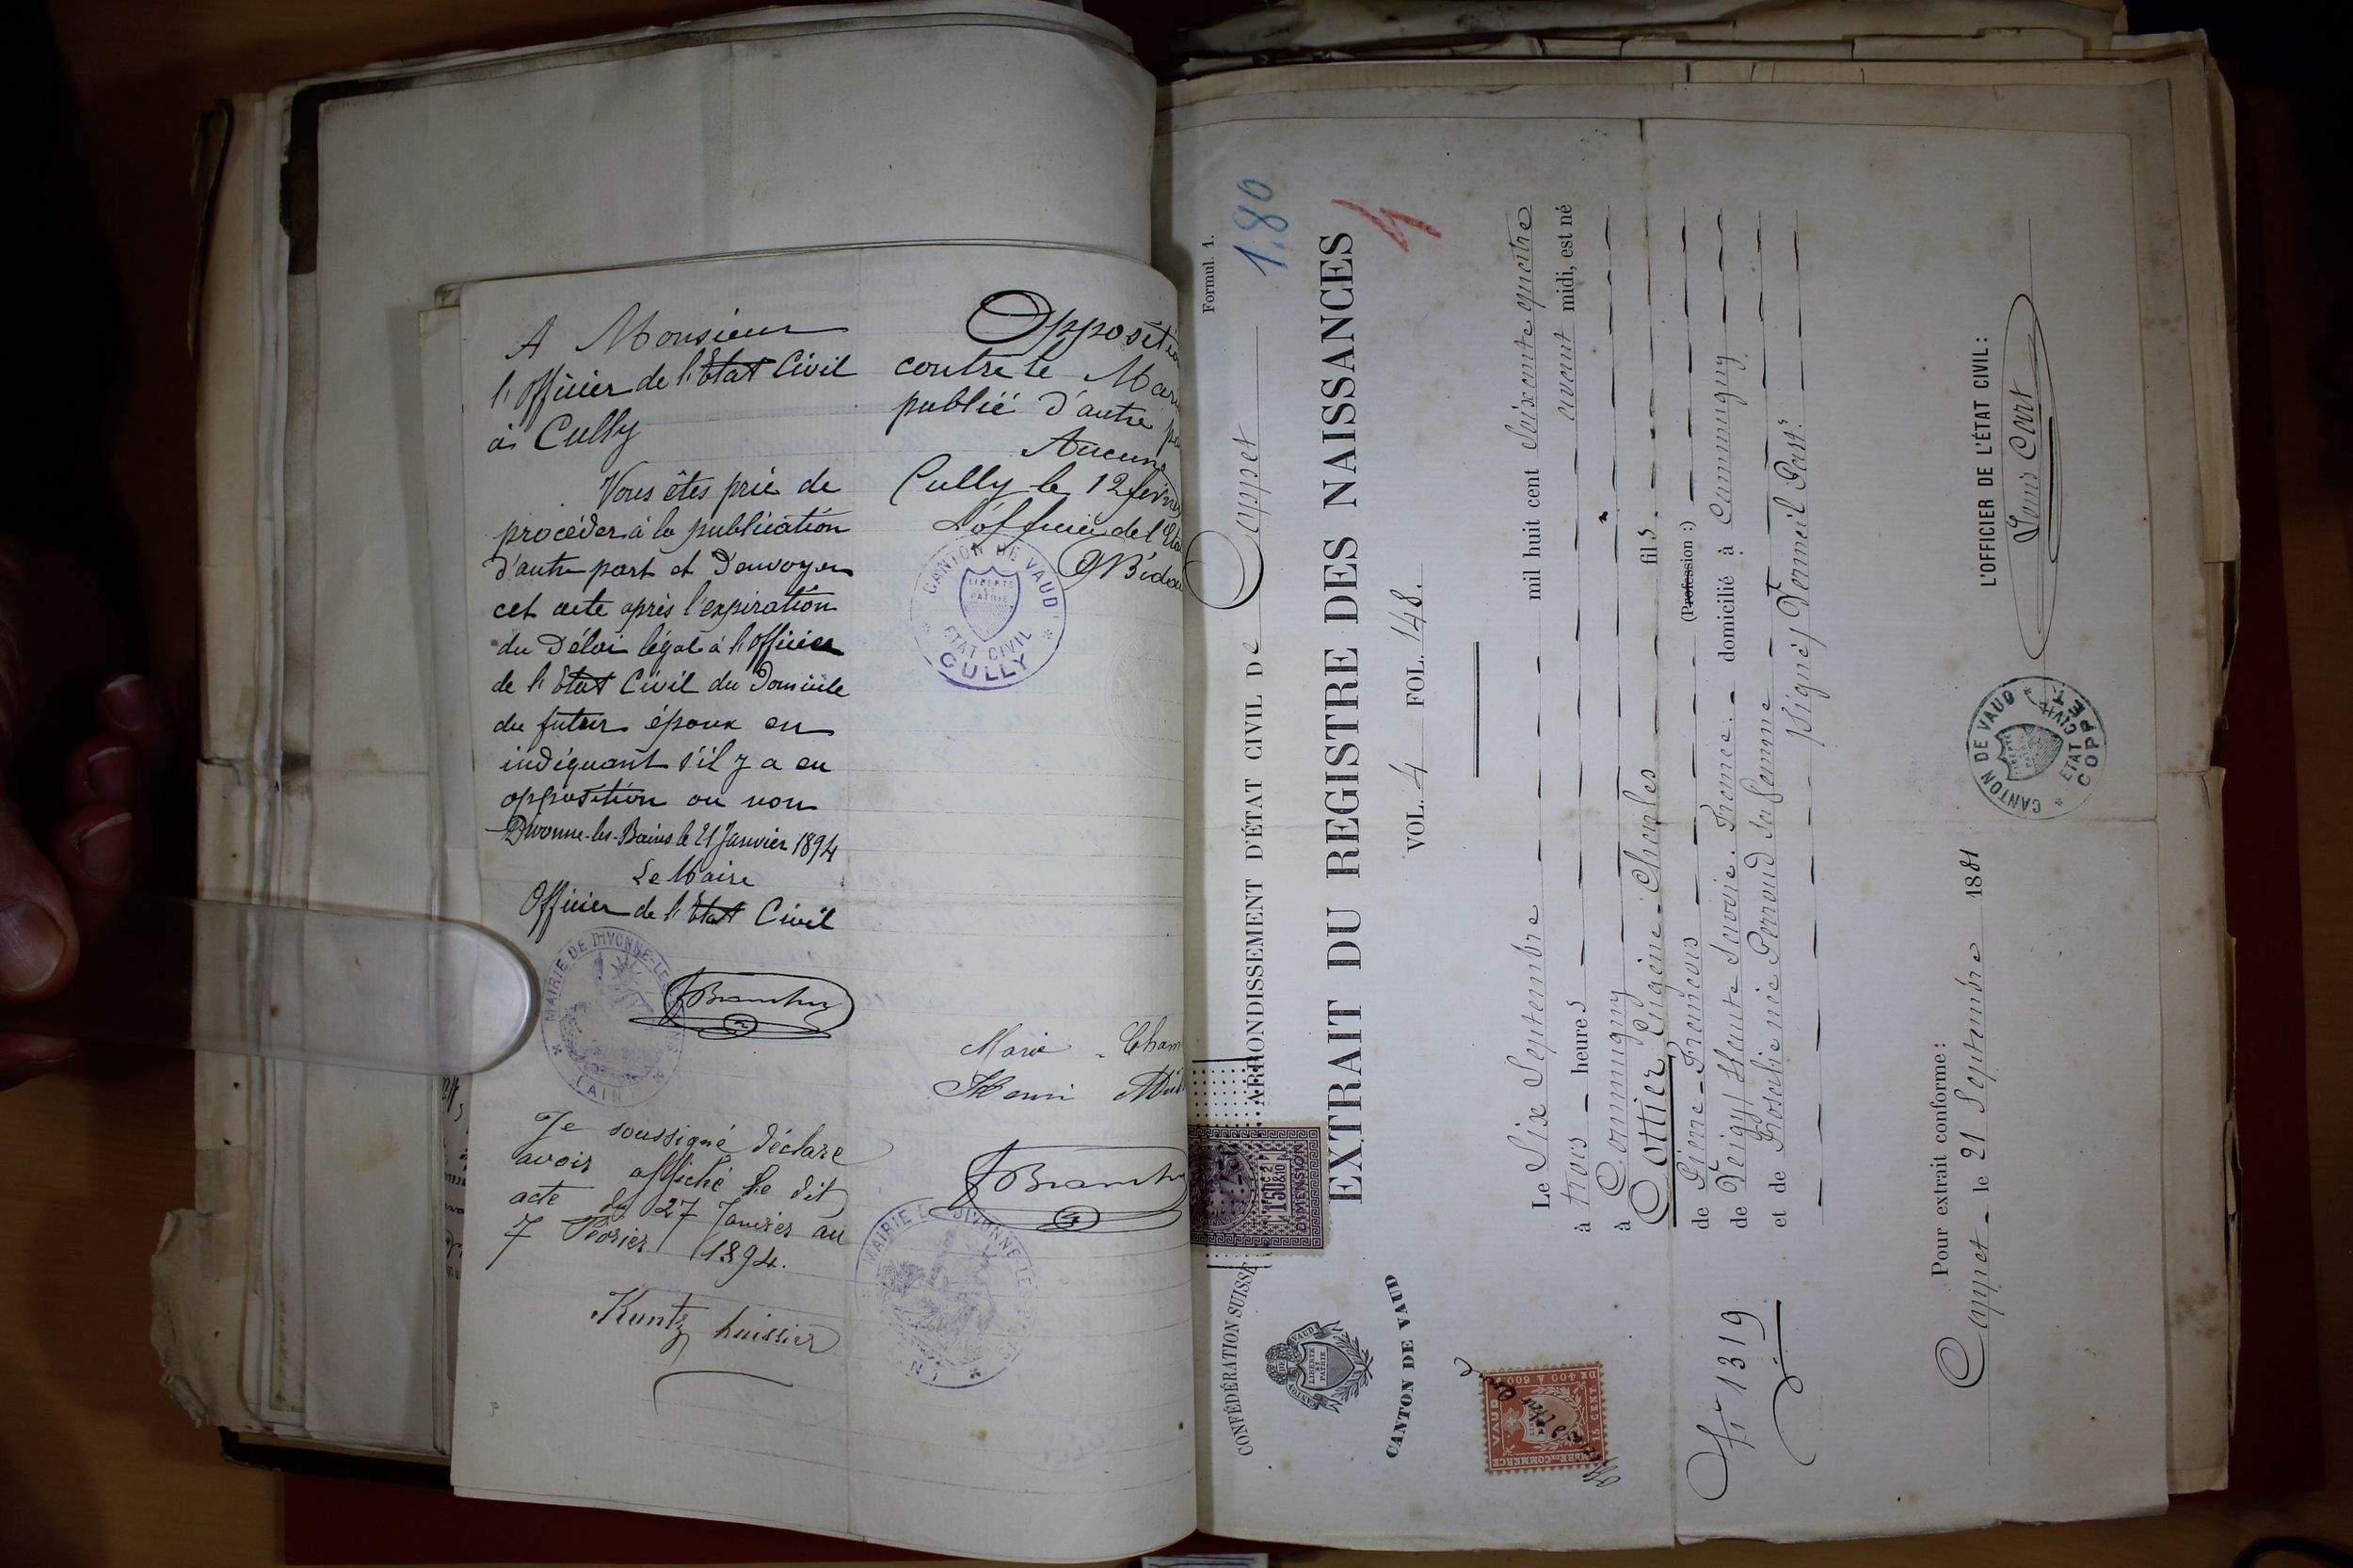 A Monsieur
l'Officier de l'Etat Civil
à Cully
Vous êtes prié de
procéder à la publication
d'autre part et d'envoyer
cet acte après l'expiration
du délai légal à l'Officier
de l'Etat Civil du domicile
du futur époux en
indiquant s'il y a eu
opposition ou non
Divonne-les-Bains le 21 Janvier 1894
Le Maire
Officier de l'Etat Civil
MAIRIE DE DIVONNE-LES
(AIN)
Je soussigné déclare
avoir affiché le dit
acte du 27 Janvier au
7 Février 1894.
Kuntz huissier
Oppositio
contre le Mar
publié d'autre pa
Aucune
Cully le 12 févri
L'officier de l'Eta
CANTON DE VAUD
LIBERTÉ ET PATRIE
ETAT CIVIL
CULLY
Marie Cham
Henri
MAIRIE DE DIVONNE-LES-BAINS
Formul. 1.
1.80
CONFÉDÉRATION SUISSE
CANTON DE VAUD
LIBERTÉ ET PATRIE
CANTON DE VAUD
ARRONDISSEMENT D'ÉTAT CIVIL De Coppet
EXTRAIT DU REGISTRE DES NAISSANCES
4
VOL. 4 FOL. 148.
1F50c
2/10
DIMENSION
Le Six Septembre mil huit cent Soixante quatre
à trois heures avant midi, est né
à Commugny
Cottier Eugène-Charles fils
de Pierre-François (Profession:)
de Veigy, Haute Savoie. France. domicilié à Commugny
et de Rosalie née Perroud sa femme
(signé) Verneil Past.r
TIMBRE DE COMMERCE
VAUD
15 CENT.
DE 400 À 600
No 1319
Pour extrait conforme:
Coppet le 21 Septembre 1881
CANTON DE VAUD
ETAT CIVIL
COPPET
L'OFFICIER DE L'ÉTAT CIVIL:
Louis Cart